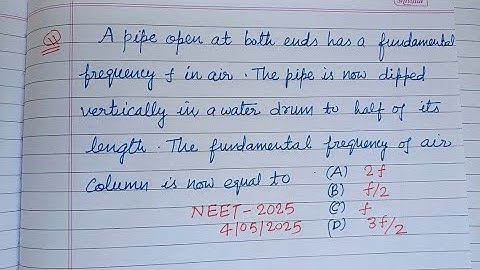 A pipe open at both ends has a fundamental
frequency f in air. The pipe is now dipped
vertically in a water drum to half of its
length. The fundamental frequency of air
column is now equal to (A) 2f
(B) f/2
NEET-2025 (C) f
4/05/2025 (D) 3f/2